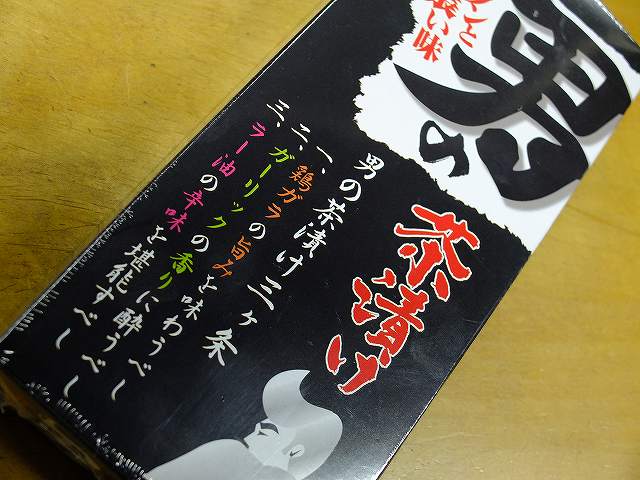 男の
ンと
濃い味
茶漬け
男の茶漬け三ヶ条
一、鶏ガラの旨みを味わうべし
二、ガーリックの香りに酔うべし
三、ラー油の辛味を堪能すべし